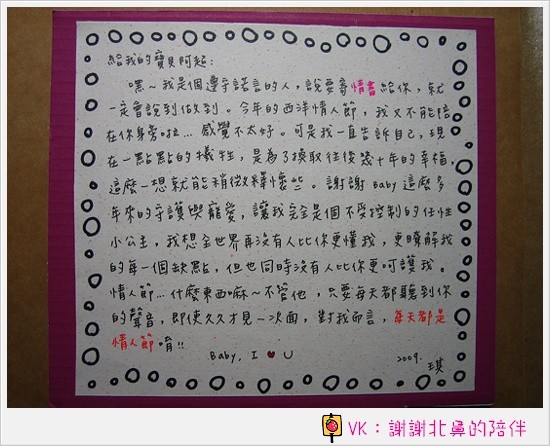 給我的寶貝阿超:
嘿~我是個遵守諾言的人,說要寄情書給你,就
一定會說到做到。今年的西洋情人節,我又不能陪
在你身旁啦...感覺不太好。可是我一直告訴自己,現
在一點點的犧牲,是為了換取往後幾十年的幸福,
這麼一想就能稍微釋懷些。謝謝Baby這麼多
年來的守護與寵愛,讓我完全是個不受控制的任性
小公主,我想全世界再沒有人比你更懂我,更瞭解我
的每一個缺點,但也同時沒有人比你更呵護我。
情人節...什麼東西嘛~不管他,只要每天都聽到你
的聲音,即使久久才見一次面,對我而言,每天都是
情人節唷!!
Baby, I ♥ U
2009. 琪
VK:謝謝北鼻的陪伴